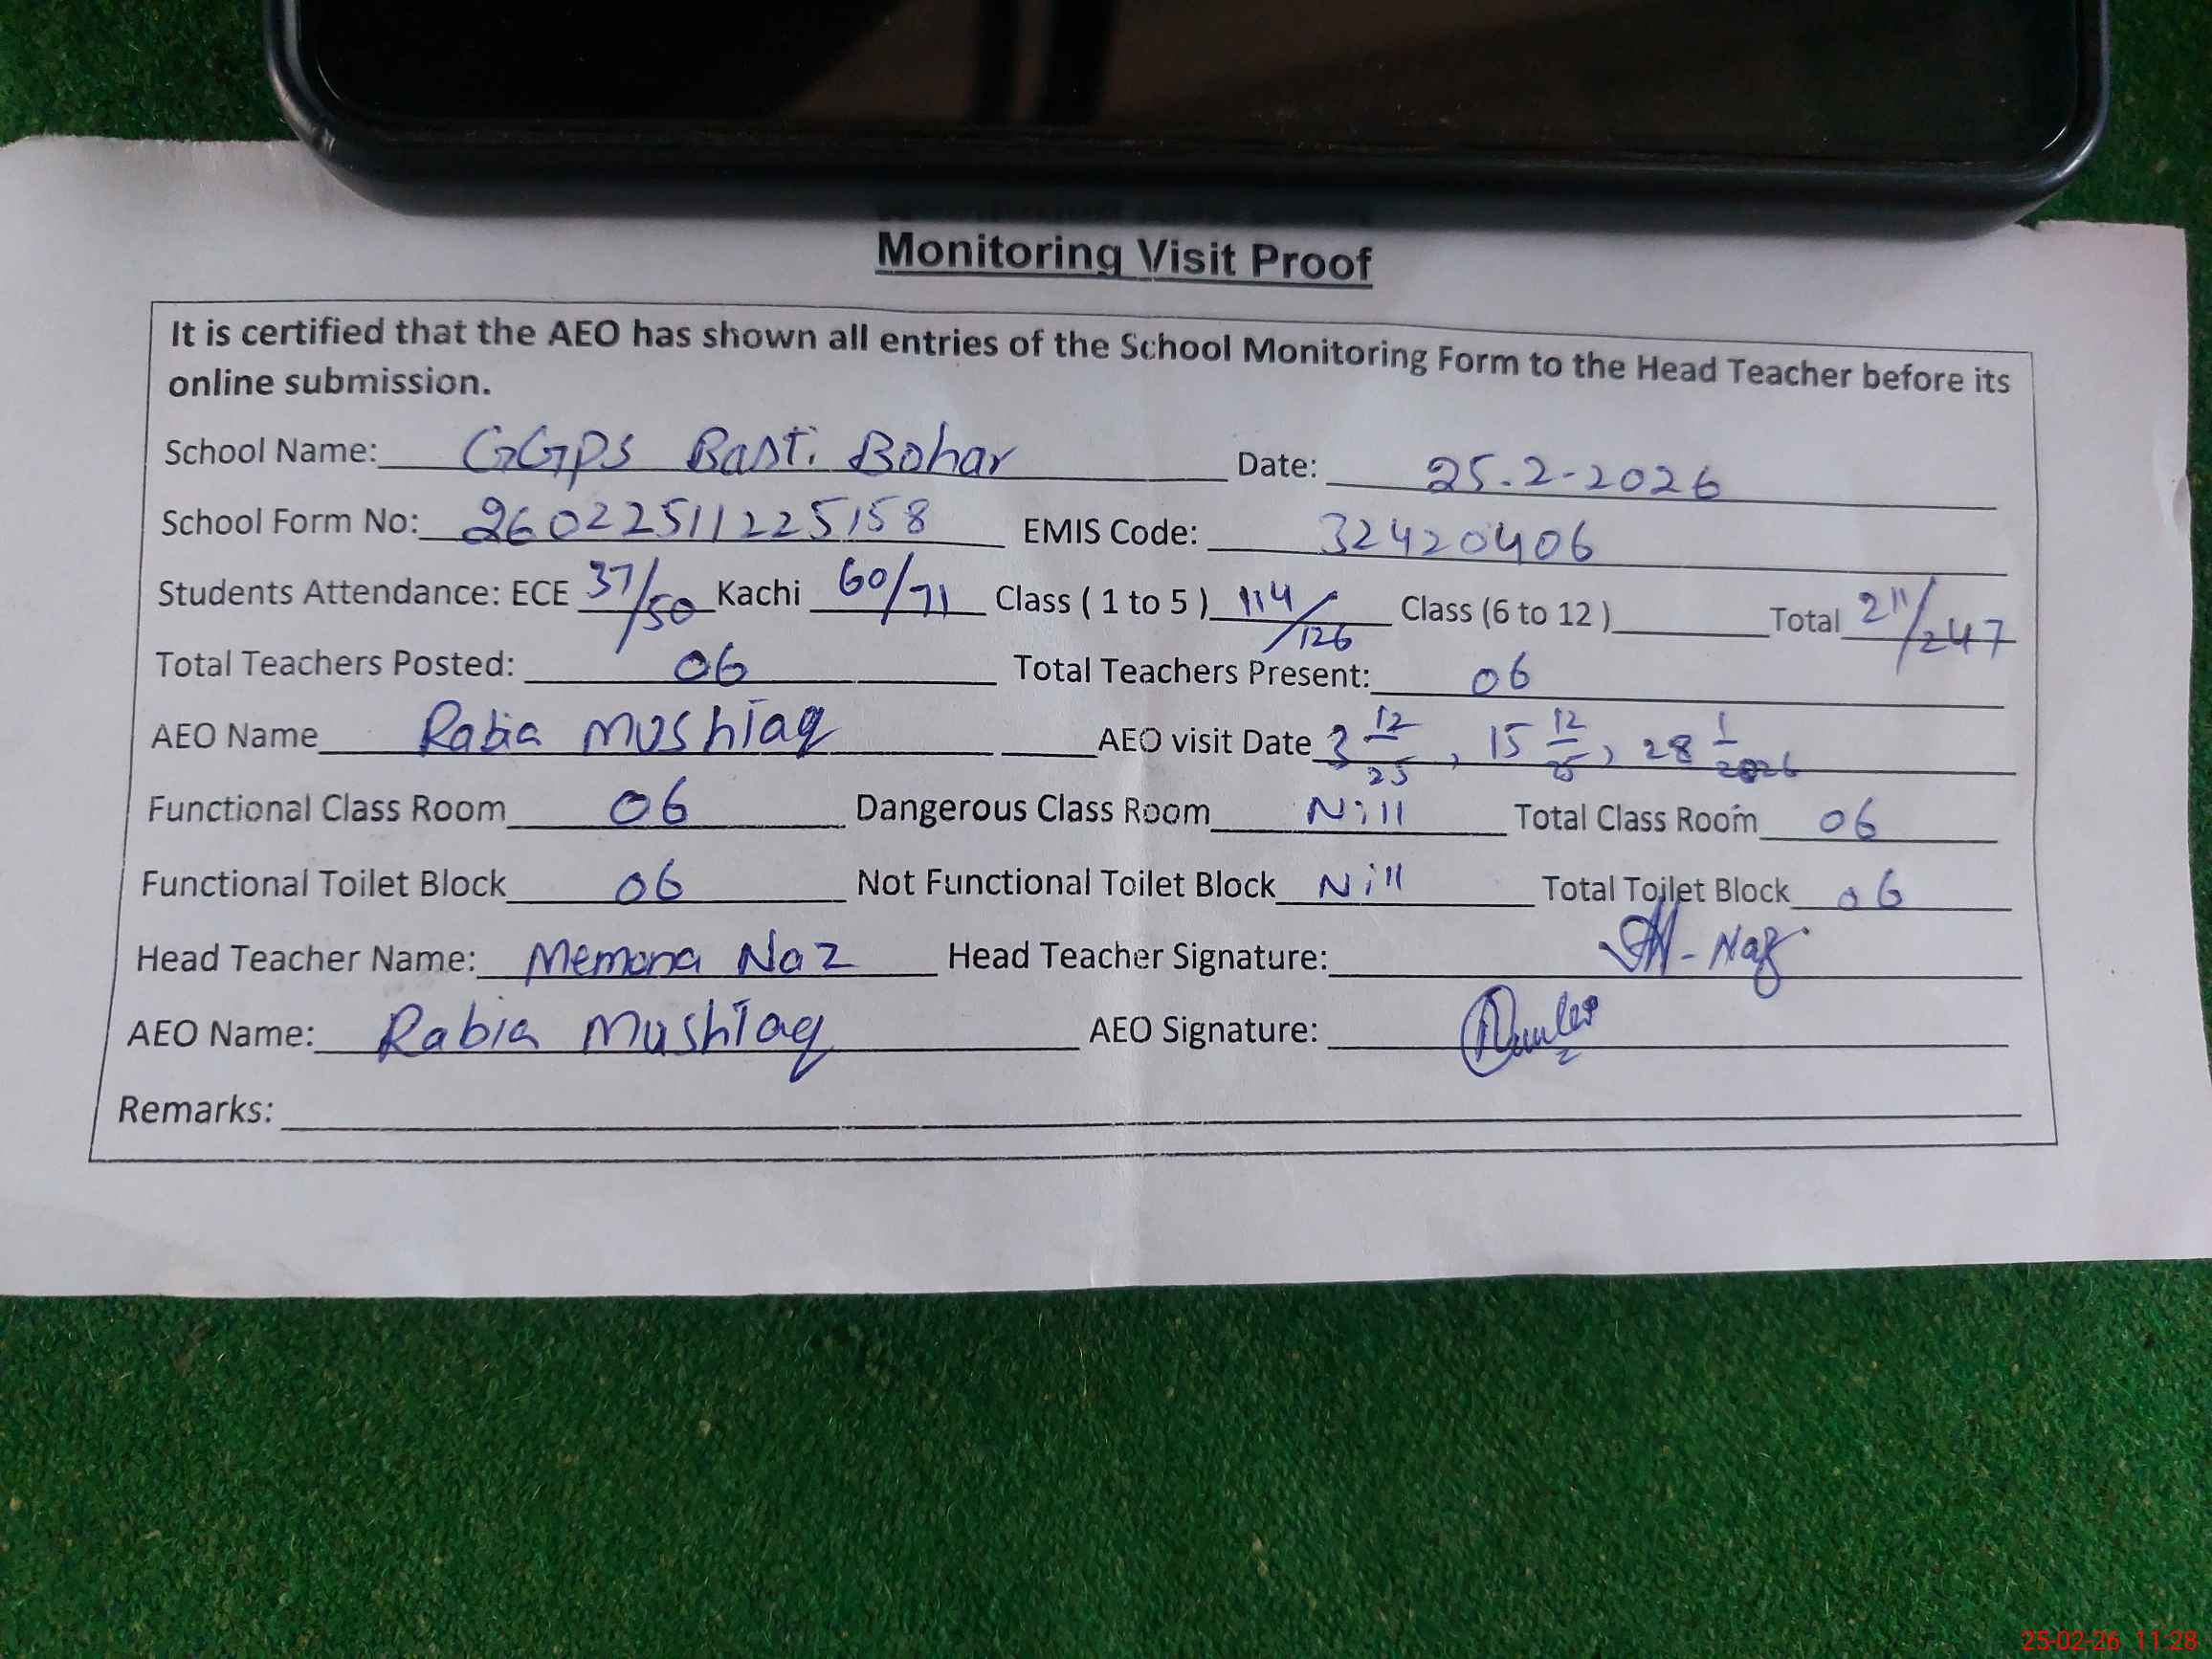 Monitoring Visit Proof
It is certified that the AEO has shown all entries of the School Monitoring Form to the Head Teacher before its
online submission.
School Name: GGPS Basti Bohar Date: 25.2-2026
School Form No: 26022511225158 EMIS Code: 32420406
Students Attendance: ECE 37/50 Kachi 60/71 Class ( 1 to 5 ) 114/126 Class (6 to 12 ) Total 211/247
Total Teachers Posted: 06 Total Teachers Present: 06
AEO Name Rabia Mushtaq AEO visit Date 3 12/25, 15 12/25, 28 1/2026
Functional Class Room 06 Dangerous Class Room Nill Total Class Room 06
Functional Toilet Block 06 Not Functional Toilet Block Nill Total Toilet Block 06
Head Teacher Name: Memona Naz Head Teacher Signature: M-Naz
AEO Name: Rabia Mushtaq AEO Signature:
Remarks:
25-02-26 11:28